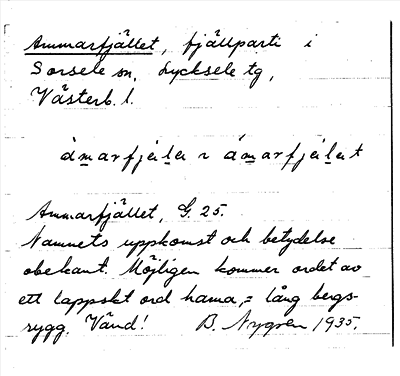 Ammarfjället, fjällparti i
Sorsele sn, Lycksele tg,
Västerb. l.
Ammarfjället, G. 25.
Namnets uppkomst och betydelse
obekant. Möjligen kommer ordet av
ett lappskt ord hama, = lång bergs-
rygg. Vänd! B. Nygren 1935.